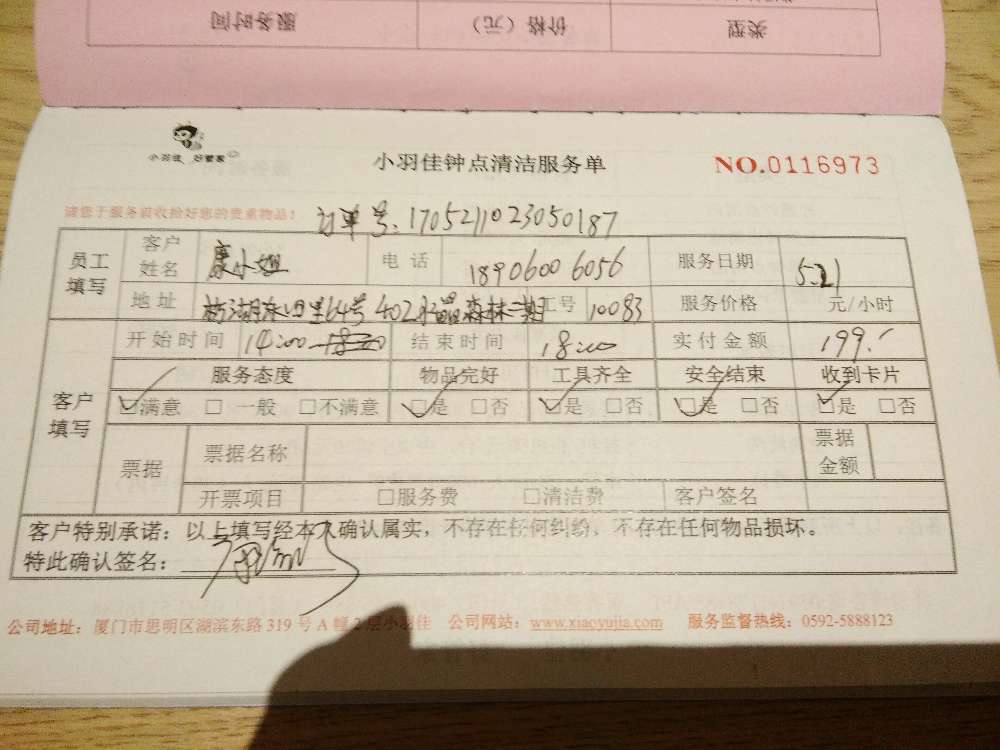 类型 价格（元） 服务时间
小羽佳 好管家
小羽佳钟点清洁服务单
NO.0116973
请您于服务前收拾好您的贵重物品！
订单号：1705211023050187
员工填写 客户姓名 康小姐 电话 18906006056 服务日期 5.21
地址 枋湖东四里64号402水晶森林二期 工号 10083 服务价格 元/小时
客户填写 开始时间 14:00 18:00 结束时间 18:00 实付金额 199.
服务态度 物品完好 工具齐全 安全结束 收到卡片
☑满意 □一般 □不满意 ☑是 □否 ☑是 □否 ☑是 □否 ☑是 □否
票据 票据名称 票据金额
开票项目 □服务费 □清洁费 客户签名
客户特别承诺：以上填写经本人确认属实，不存在任何纠纷，不存在任何物品损坏。
特此确认签名：
公司地址：厦门市思明区湖滨东路319号A幢2层小羽佳 公司网站：www.xiaoyujia.com 服务监督热线：0592-5888123